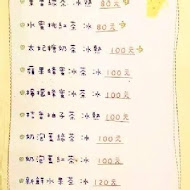 綠茶 冰 80元
水蜜桃紅茶 冰 80元
太妃糖奶茶 冰熱 100元
蘋果蜂蜜冰茶 冰 100元
檸檬蜂蜜冰茶 冰 100元
柚子茶 冰 100元
奶泡蓋綠茶 冰 100元
奶泡蓋紅茶 冰 100元
新鮮水果茶 冰 120元